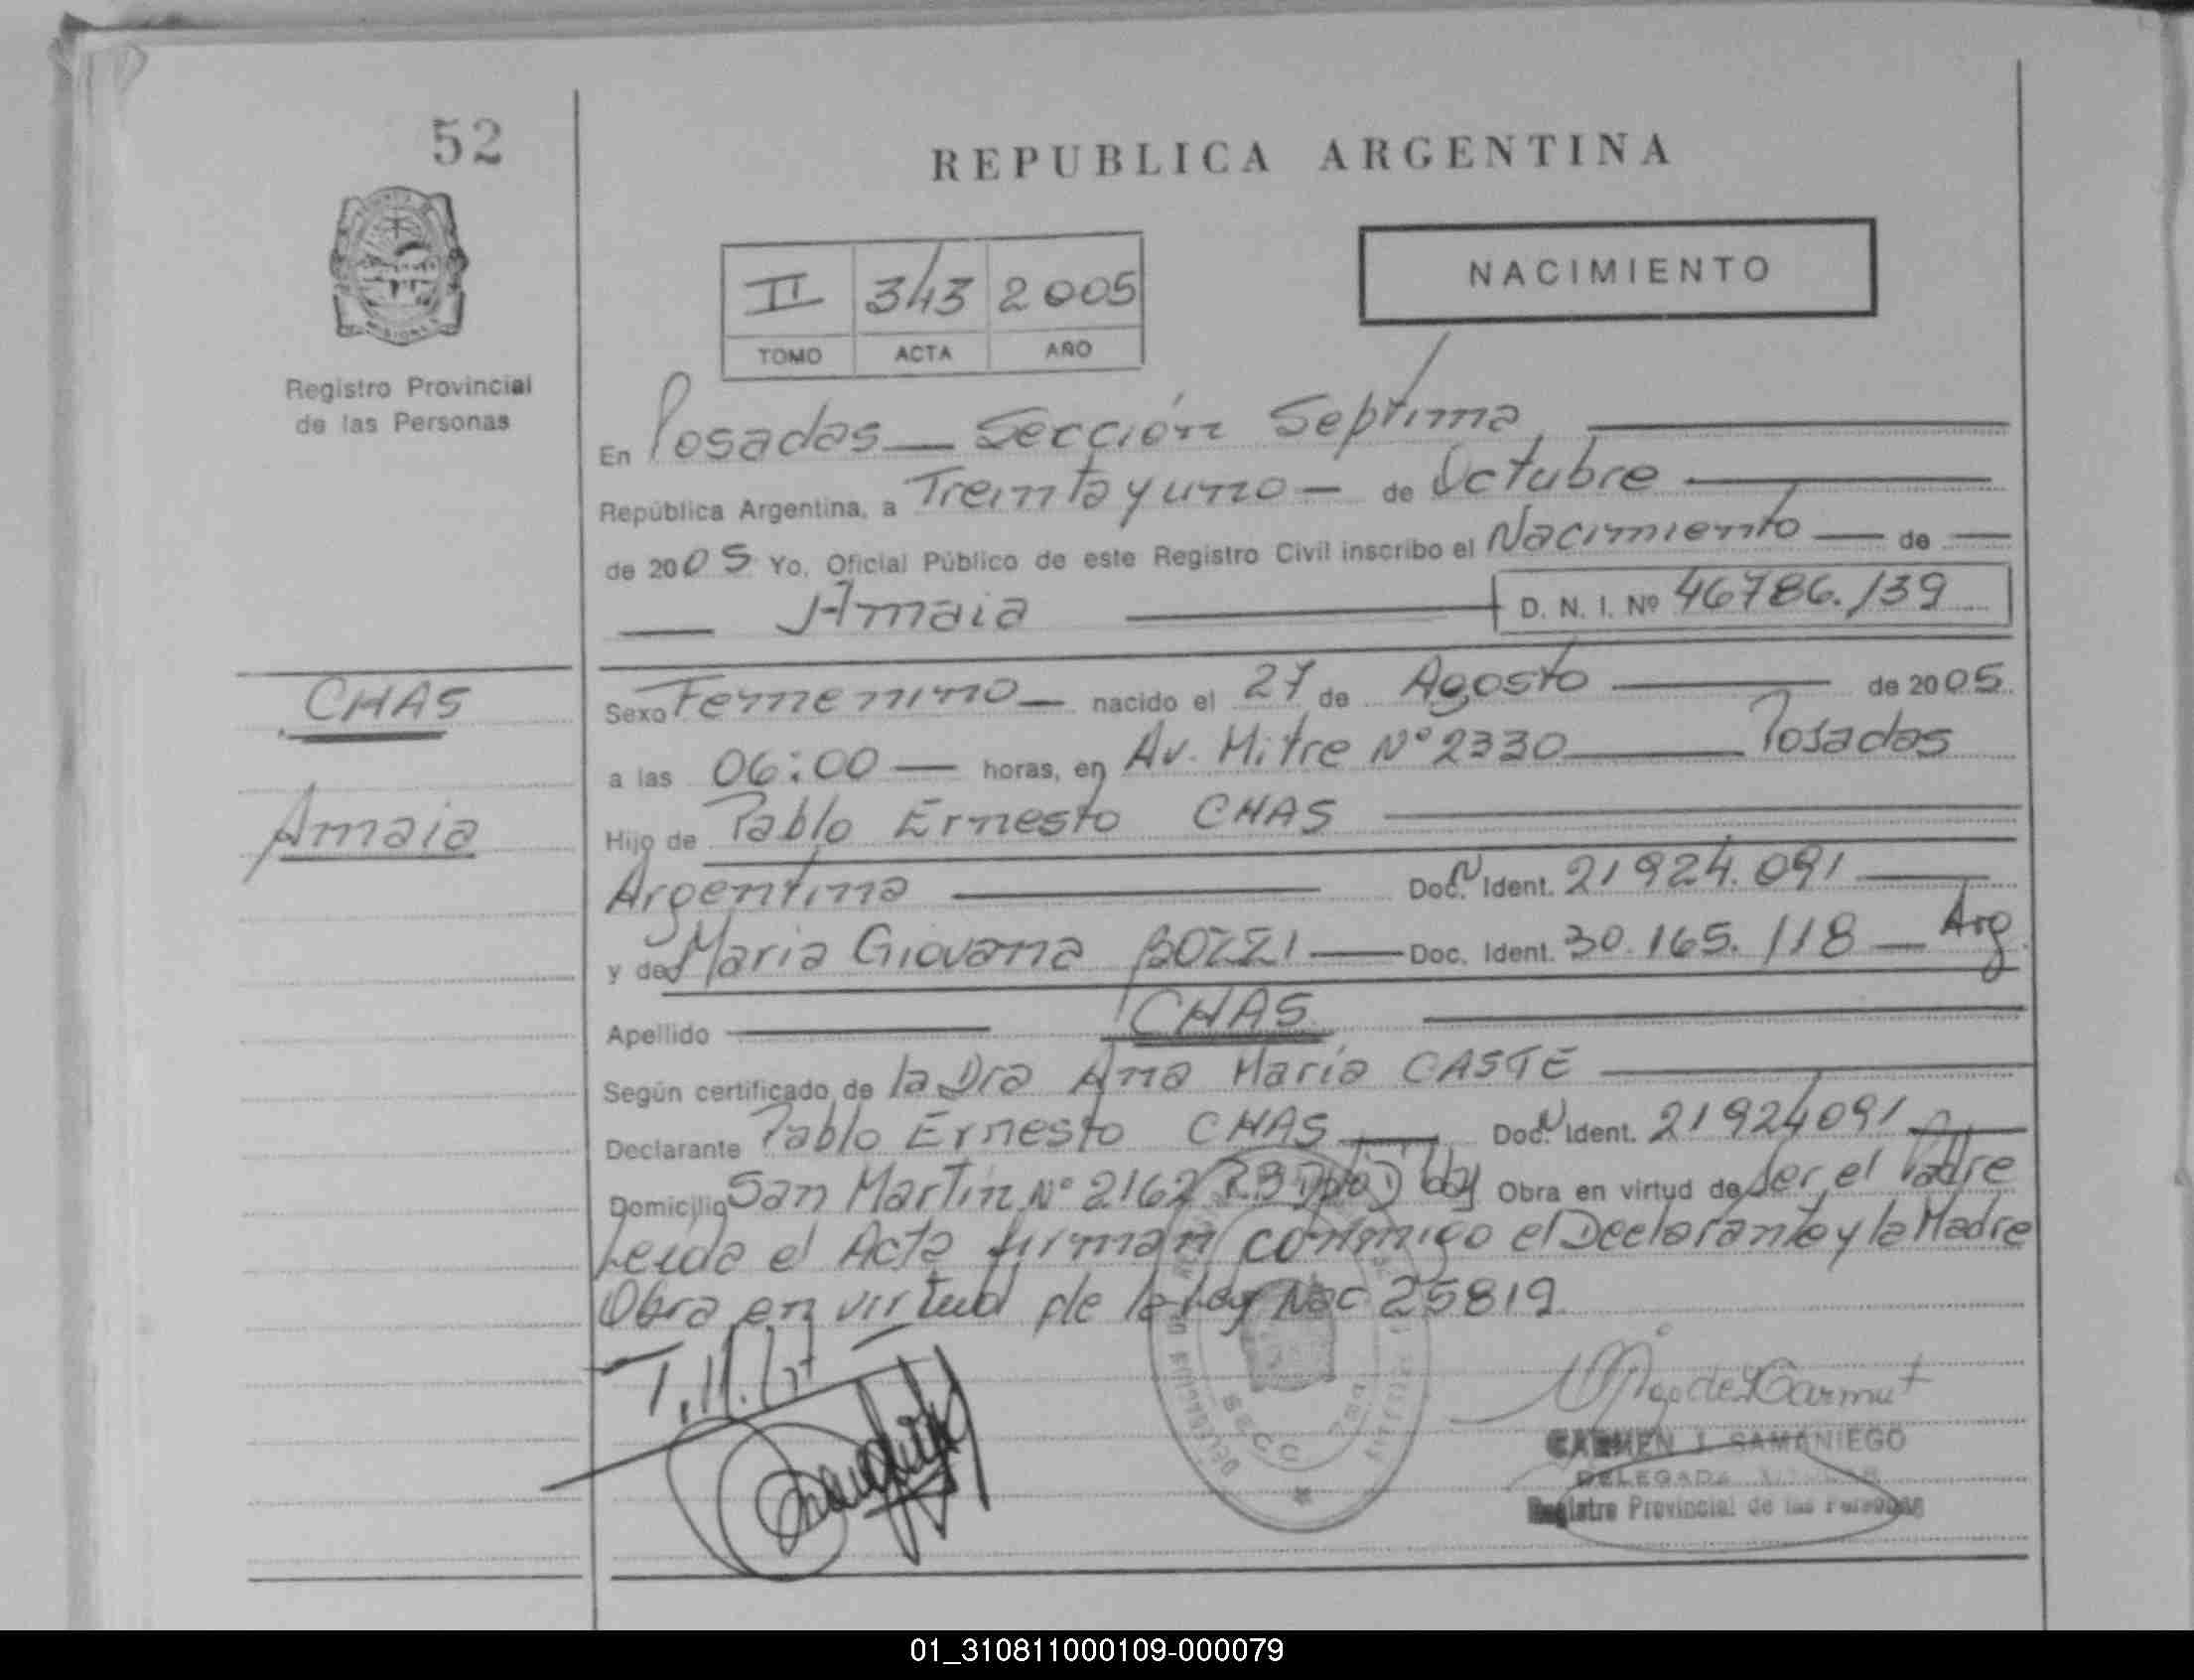 52
REPUBLICA ARGENTINA
NACIMIENTO
II 343 2005
TOMO ACTA AÑO
Registro Provincial
de las Personas
En Posadas — Sección Septima
República Argentina, a Treinta y uno — de Octubre
de 2005 Yo, Oficial Público de este Registro Civil inscribo el Nacimiento — de —
— Amaia — D. N. I. Nº 46786.139
CHAS
Amaia
Sexo Femenino — nacido el 27 de Agosto — de 2005
a las 06:00 — horas, en Av. Mitre Nº 2330 — Posadas
Hijo de Pablo Ernesto CHAS
Argentina — Doc. N Ident. 21924.091 —
y de Maria Giovana BOZZI — Doc. Ident. 30.165.118 — Arg
Apellido — CHAS —
Según certificado de la Dra Ana María CASTE —
Declarante Pablo Ernesto CHAS — Doc. N Ident. 21924091 —
Domicilio San Martín Nº 2162 Obra en virtud de ser el Padre
Leida el Acta firman conmigo el Declarante y la Madre
Obra en virtud de la Ley Nac 25819
CARMEN J. SAMANIEGO
DELEGADA TITULAR
Registro Provincial de las Personas
01_310811000109-000079